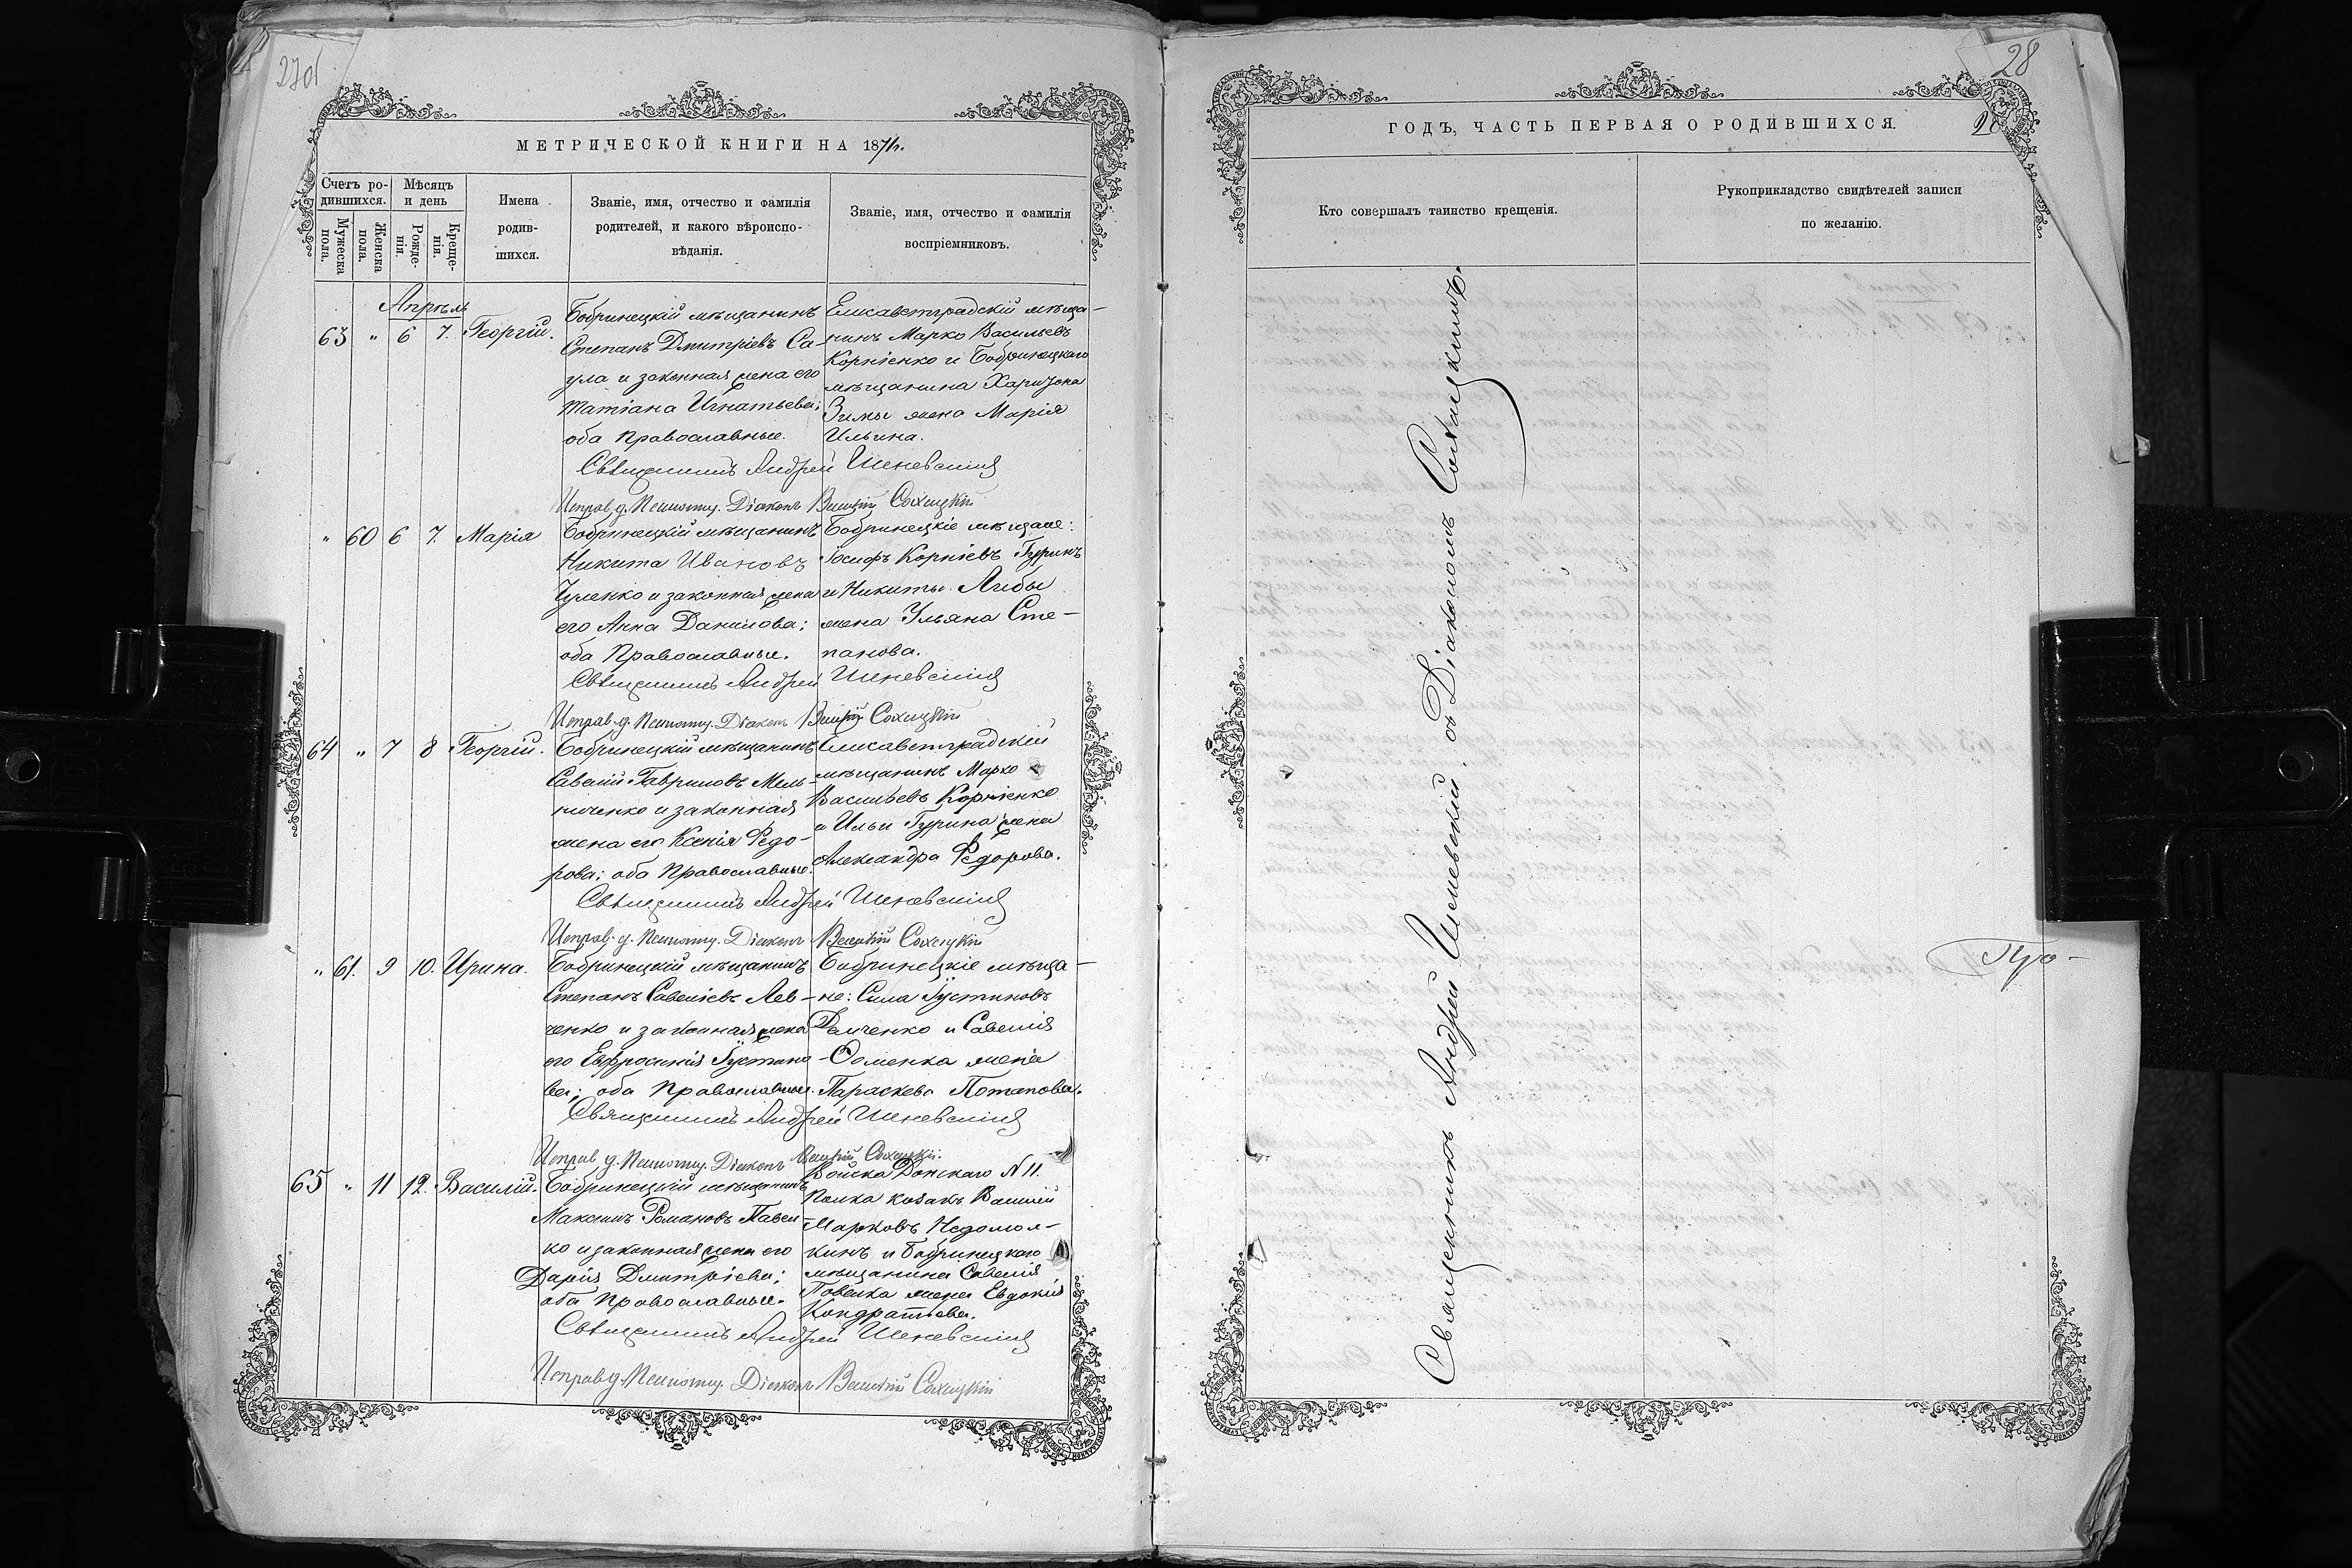 270б
МЕТРИЧЕСКОЙ КНИГИ НА 1874.
Счетъ ро-
дившихся.
Мужеска
пола.
Женска
пола.
Мѣсяцъ
и день
Рожде-
нія.
Креще-
нія.
Имена
родив-
шихся.
Званіе, имя, отчество и фамилія
родителей, и какого вѣроиспо-
вѣданія.
Званіе, имя, отчество и фамилія
воспріемниковъ.
Апрѣль
63 " 6 7. Георгій.
Бобринецкій мѣщанинъ
Степанъ Дмитріевъ Са-
ула и законная жена его
Татіана Игнатьева;
оба Православные.
Елисаветградскій мѣща-
нинъ Марко Васильевъ
Корніенко и Бобринецкаго
мѣщанина Харитона
Зимы жена Марія
Ильина.
Священникъ Андрей
Исправ. д. Псаломщ. Діаконъ
" 60 6 7. Марія
Бобринецкій мѣщанинъ
Никита Ивановъ
законная жена
его Анна Данилова;
оба Православные.
Бобринецкіе мѣщане:
Іосифъ Корніевъ Гуринъ
и Никиты
жена Ульяна Сте-
панова.
Священникъ Андрей
Исправ. д. Псаломщ. Діаконъ
64 " 7 8 Георгій.
Бобринецкій мѣщанинъ
Савелій Гавриловъ Мель-
ниченко и законная
жена его Ксенія Ѳедо-
рова; оба Православные.
Елисаветградскій
мѣщанинъ Марко
Васильевъ Корніенко
и Ильи Гурина жена
Александра Ѳедорова.
Священникъ Андрей
Исправ. д. Псаломщ. Діаконъ
" 61. 9 10. Ирина.
Бобринецкій мѣщанинъ
Степанъ Савеліевъ Лев-
ченко и законная жена
его Евфросинія Іустино-
ва; оба Православные.
Бобринецкіе мѣща-
не: Сила Іустиновъ
и Савелія
жена
Параскева Потапова.
Священникъ Андрей
Исправ. д. Псаломщ. Діаконъ
65 " 11 12. Василій.
Бобринецкій мѣщанинъ
Максимъ Романовъ Павел-
ко и законная жена его
Дарія Дмитріева;
оба Православные.
Войска Донскаго № 11.
Полка козакъ Василій
Марковъ Недомол-
кинъ и Бобринецкаго
мѣщанина Савелія
Павелка жена Евдокія
Кондратьева.
Священникъ Андрей
Исправ. д. Псаломщ. Діаконъ
28
ГОДЪ, ЧАСТЬ ПЕРВАЯ О РОДИВШИХСЯ.
28
Кто совершалъ таинство крещенія.
Рукоприкладство свидѣтелей записи
по желанію.
Священникъ Андрей съ Діакономъ